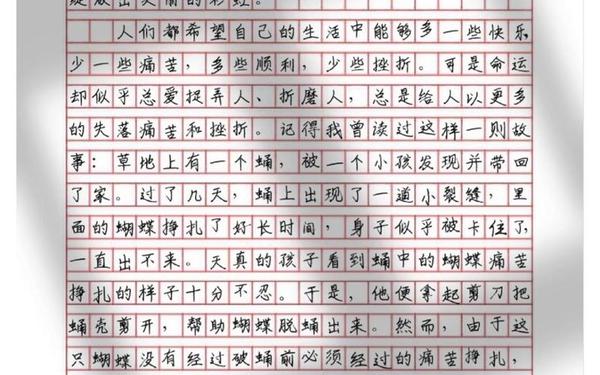 绽放出美丽的彩虹。
人们都希望自己的生活中能够多一些快乐
少一些痛苦，多些顺利，少些挫折。可是命运
却似乎总爱捉弄人、折磨人，总是给人以更多
的失落痛苦和挫折。记得我曾读过这样一则故
事：草地上有一个蛹，被一个小孩发现并带回
了家。过了几天，蛹上出现了一道小裂缝，里
面的蝴蝶挣扎了好长时间，身子似乎被卡住了，
一直出不来。天真的孩子看到蛹中的蝴蝶痛苦
挣扎的样子十分不忍。于是，他便拿起剪刀把
蛹壳剪开，帮助蝴蝶脱蛹出来。然而，由于这
只蝴蝶没有经过破蛹前必须经过的痛苦挣扎，